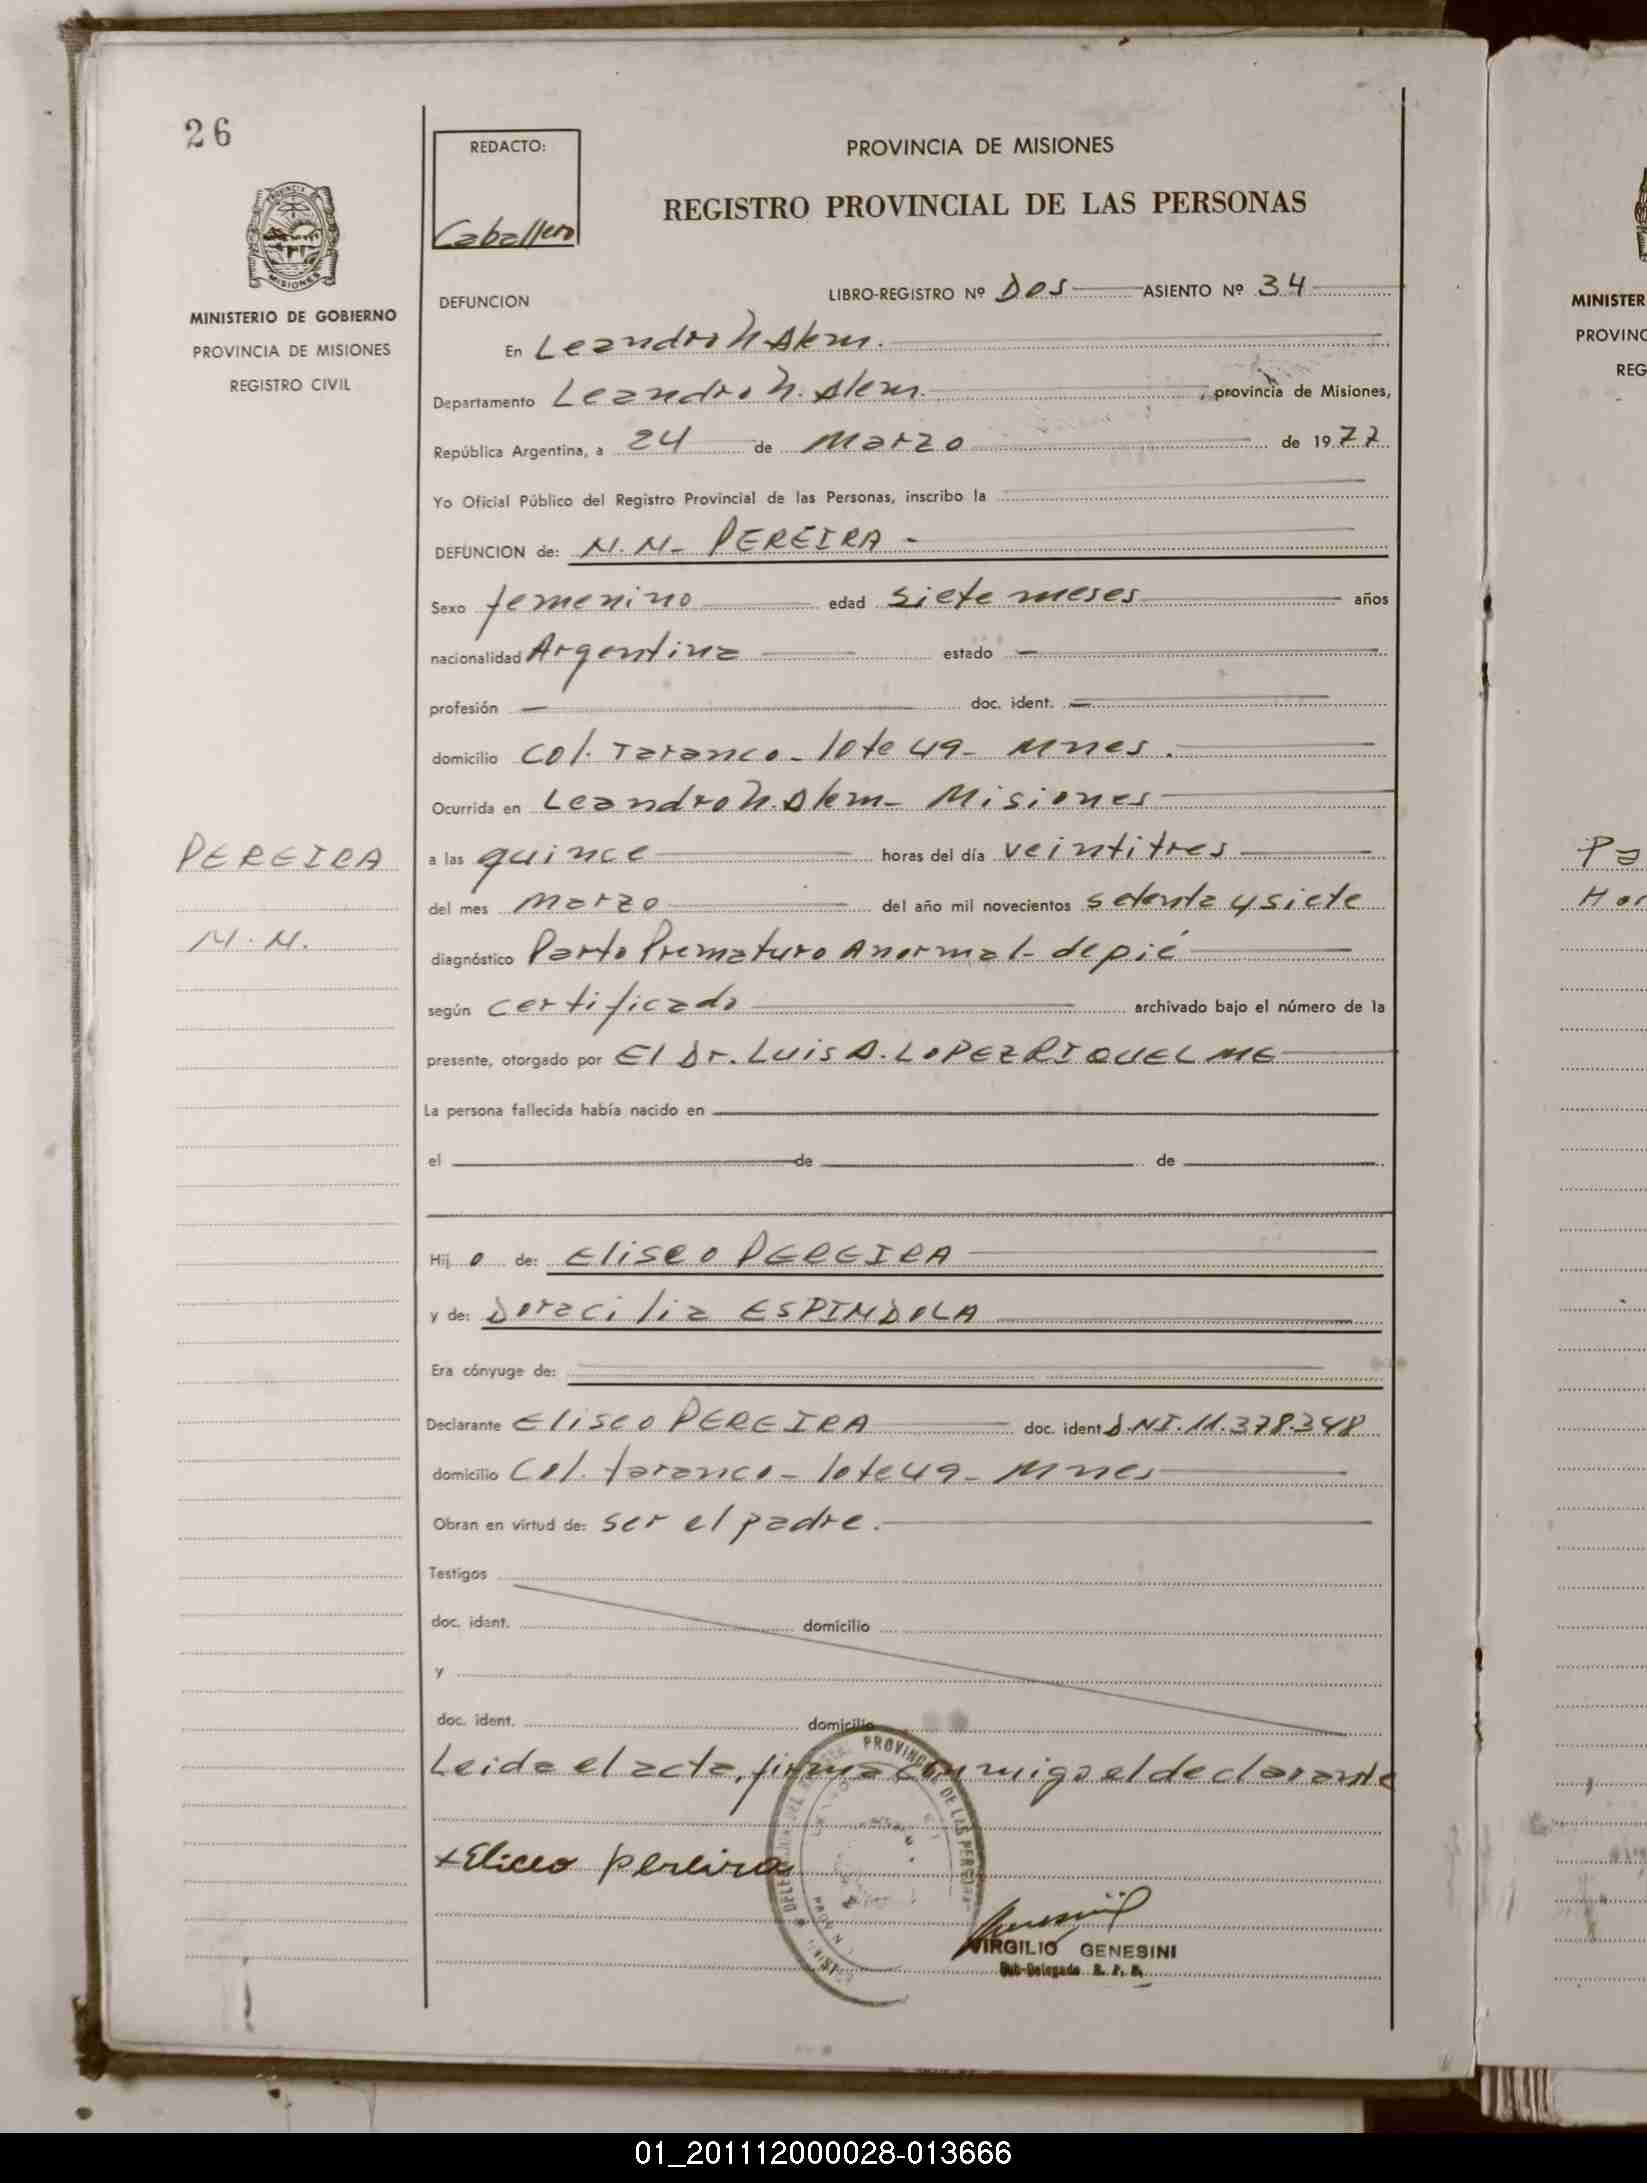 26
REDACTO:
Caballero
PROVINCIA DE MISIONES
REGISTRO PROVINCIAL DE LAS PERSONAS
PROVINCIA
MISIONES
MINISTERIO DE GOBIERNO
PROVINCIA DE MISIONES
REGISTRO CIVIL
DEFUNCION
LIBRO-REGISTRO Nº Dos ASIENTO Nº 34
En Leandro N. Alem.
Departamento Leandro N. Alem. provincia de Misiones,
República Argentina, a 24 de Marzo de 1977
Yo Oficial Público del Registro Provincial de las Personas, inscribo la
DEFUNCION de: N.N- PEREIRA -
Sexo femenino edad siete meses años
nacionalidad Argentina estado —
profesión — doc. ident. —
domicilio Col. Taranco - lote 49 - Mnes.
Ocurrida en Leandro N. Alem - Misiones
a las quince horas del día veintitres
del mes Marzo del año mil novecientos setenta y siete
diagnóstico Parto Prematuro Anormal - de pié
según certificado archivado bajo el número de la
presente, otorgado por El Dr. Luis A. LOPEZ RIQUELME
La persona fallecida había nacido en
el de de
Hijo de: Eliseo PEREIRA
y de: Doracilia ESPINDOLA
Era cónyuge de:
Declarante Eliseo PEREIRA doc. ident D.NI. 11.378.348
domicilio Col. taranco - lote 49 - Mnes
Obran en virtud de: ser el padre.
Testigos
doc. ident. domicilio
y
doc. ident. domicilio
Leida el acta, firma conmigo el declarante
x Eliceo pereira
VIRGILIO GENESINI
Sub-Delegado R. P. P.
PEREIRA
N.N.
MINISTER
PROVINC
REG
01_201112000028-013666